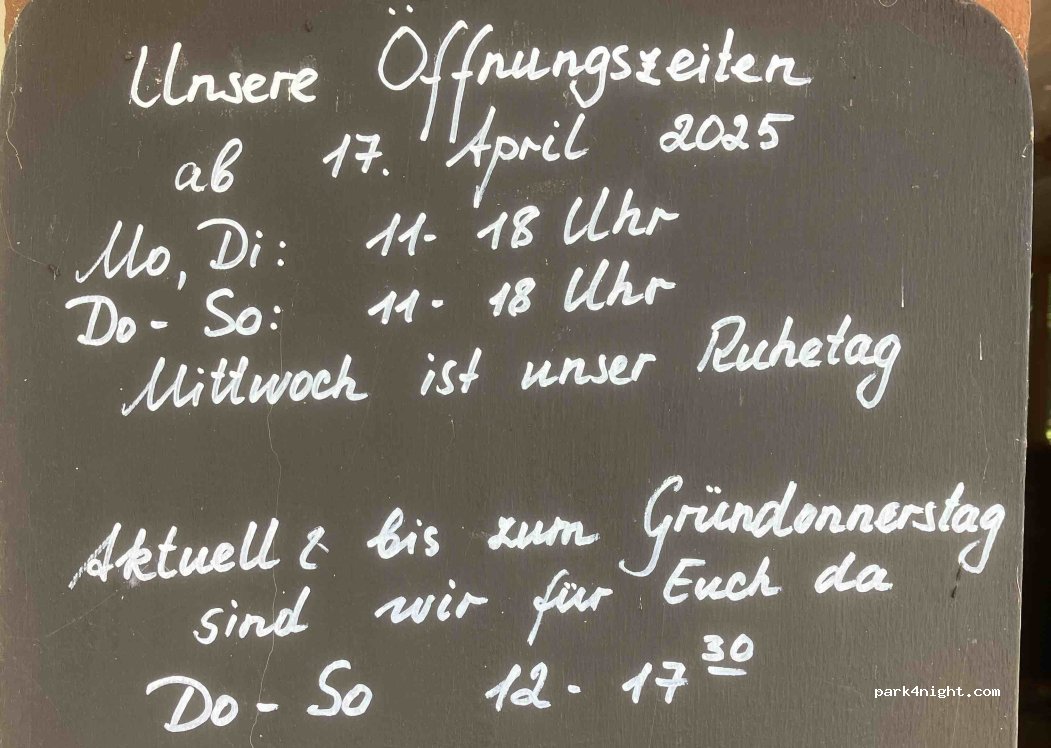 Unsere Öffnungszeiten
ab 17. April 2025
Mo, Di: 11- 18 Uhr
Do - So: 11- 18 Uhr
Mittwoch ist unser Ruhetag
Aktuell : bis zum Gründonnerstag
sind wir für Euch da
Do - So 12 - 17 30
park4night.com